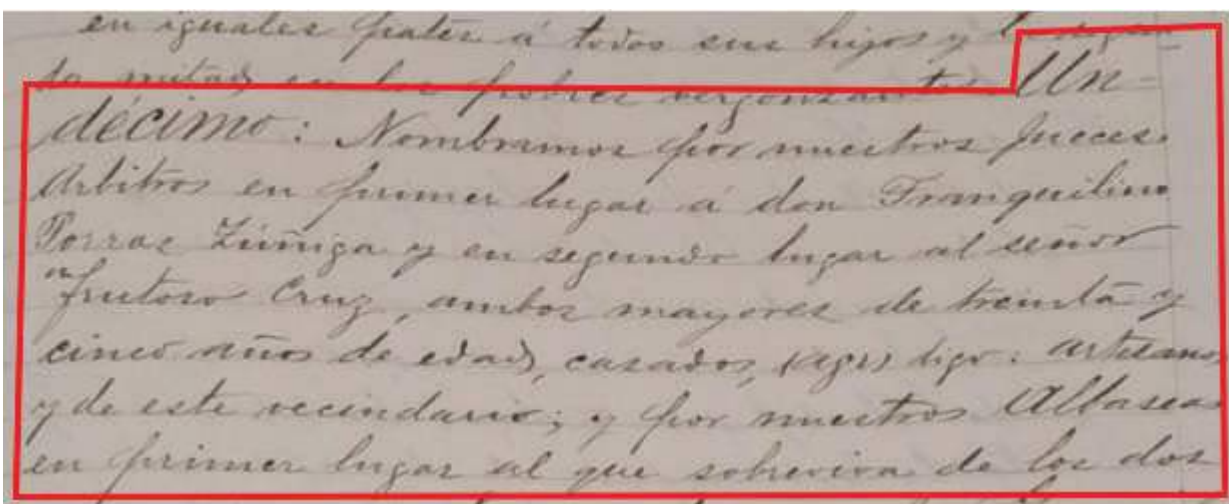 en iguales partes á todos sus hijos y la segun
da mitad en los pobres vergonzantes Un-
décimo: Nombramos por nuestros Jueces
Arbitros en primer lugar á don Tranquilino
Porras Zúñiga y en segundo lugar al señor
frutoso Cruz, ambos mayores de treinta y
cinco años de edad, casados, (agr) digo: artesanos
y de este vecindario; y por nuestros Albaseas
en primer lugar al que sobreviva de los dos